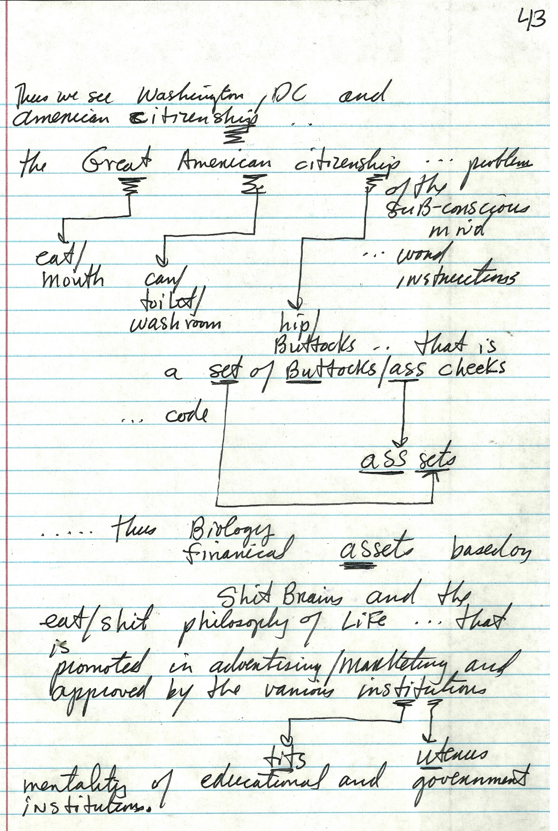 43
Thus we see Washington, DC and
american citizenship ..
the Great American citizenship ... problem
of the
suB-conscious
mind
... word
instructions
eat/
mouth
can/
toilet/
washroom
hip/
Buttocks .. that is
a set of Buttocks/ass cheeks
... code
ass sets
..... thus Biology
finanical assets based on
Shit Brains and the
eat/shit philosophy of LiFe ... that
is
promoted in advertising/marketing and
approved by the various institutions
tits
uterus
mentality of educational and government
institutions.